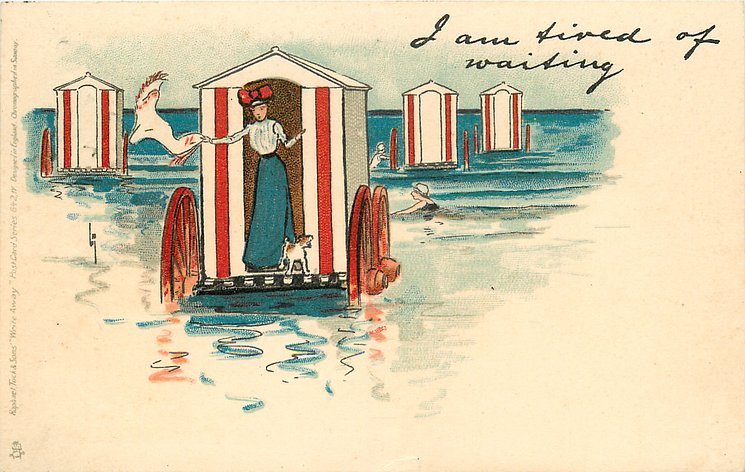 I am tired of
waiting
Raphael Tuck & Sons' "Write Away" PostCard Series 642, IV. Designed in England. Chromographed in Saxony